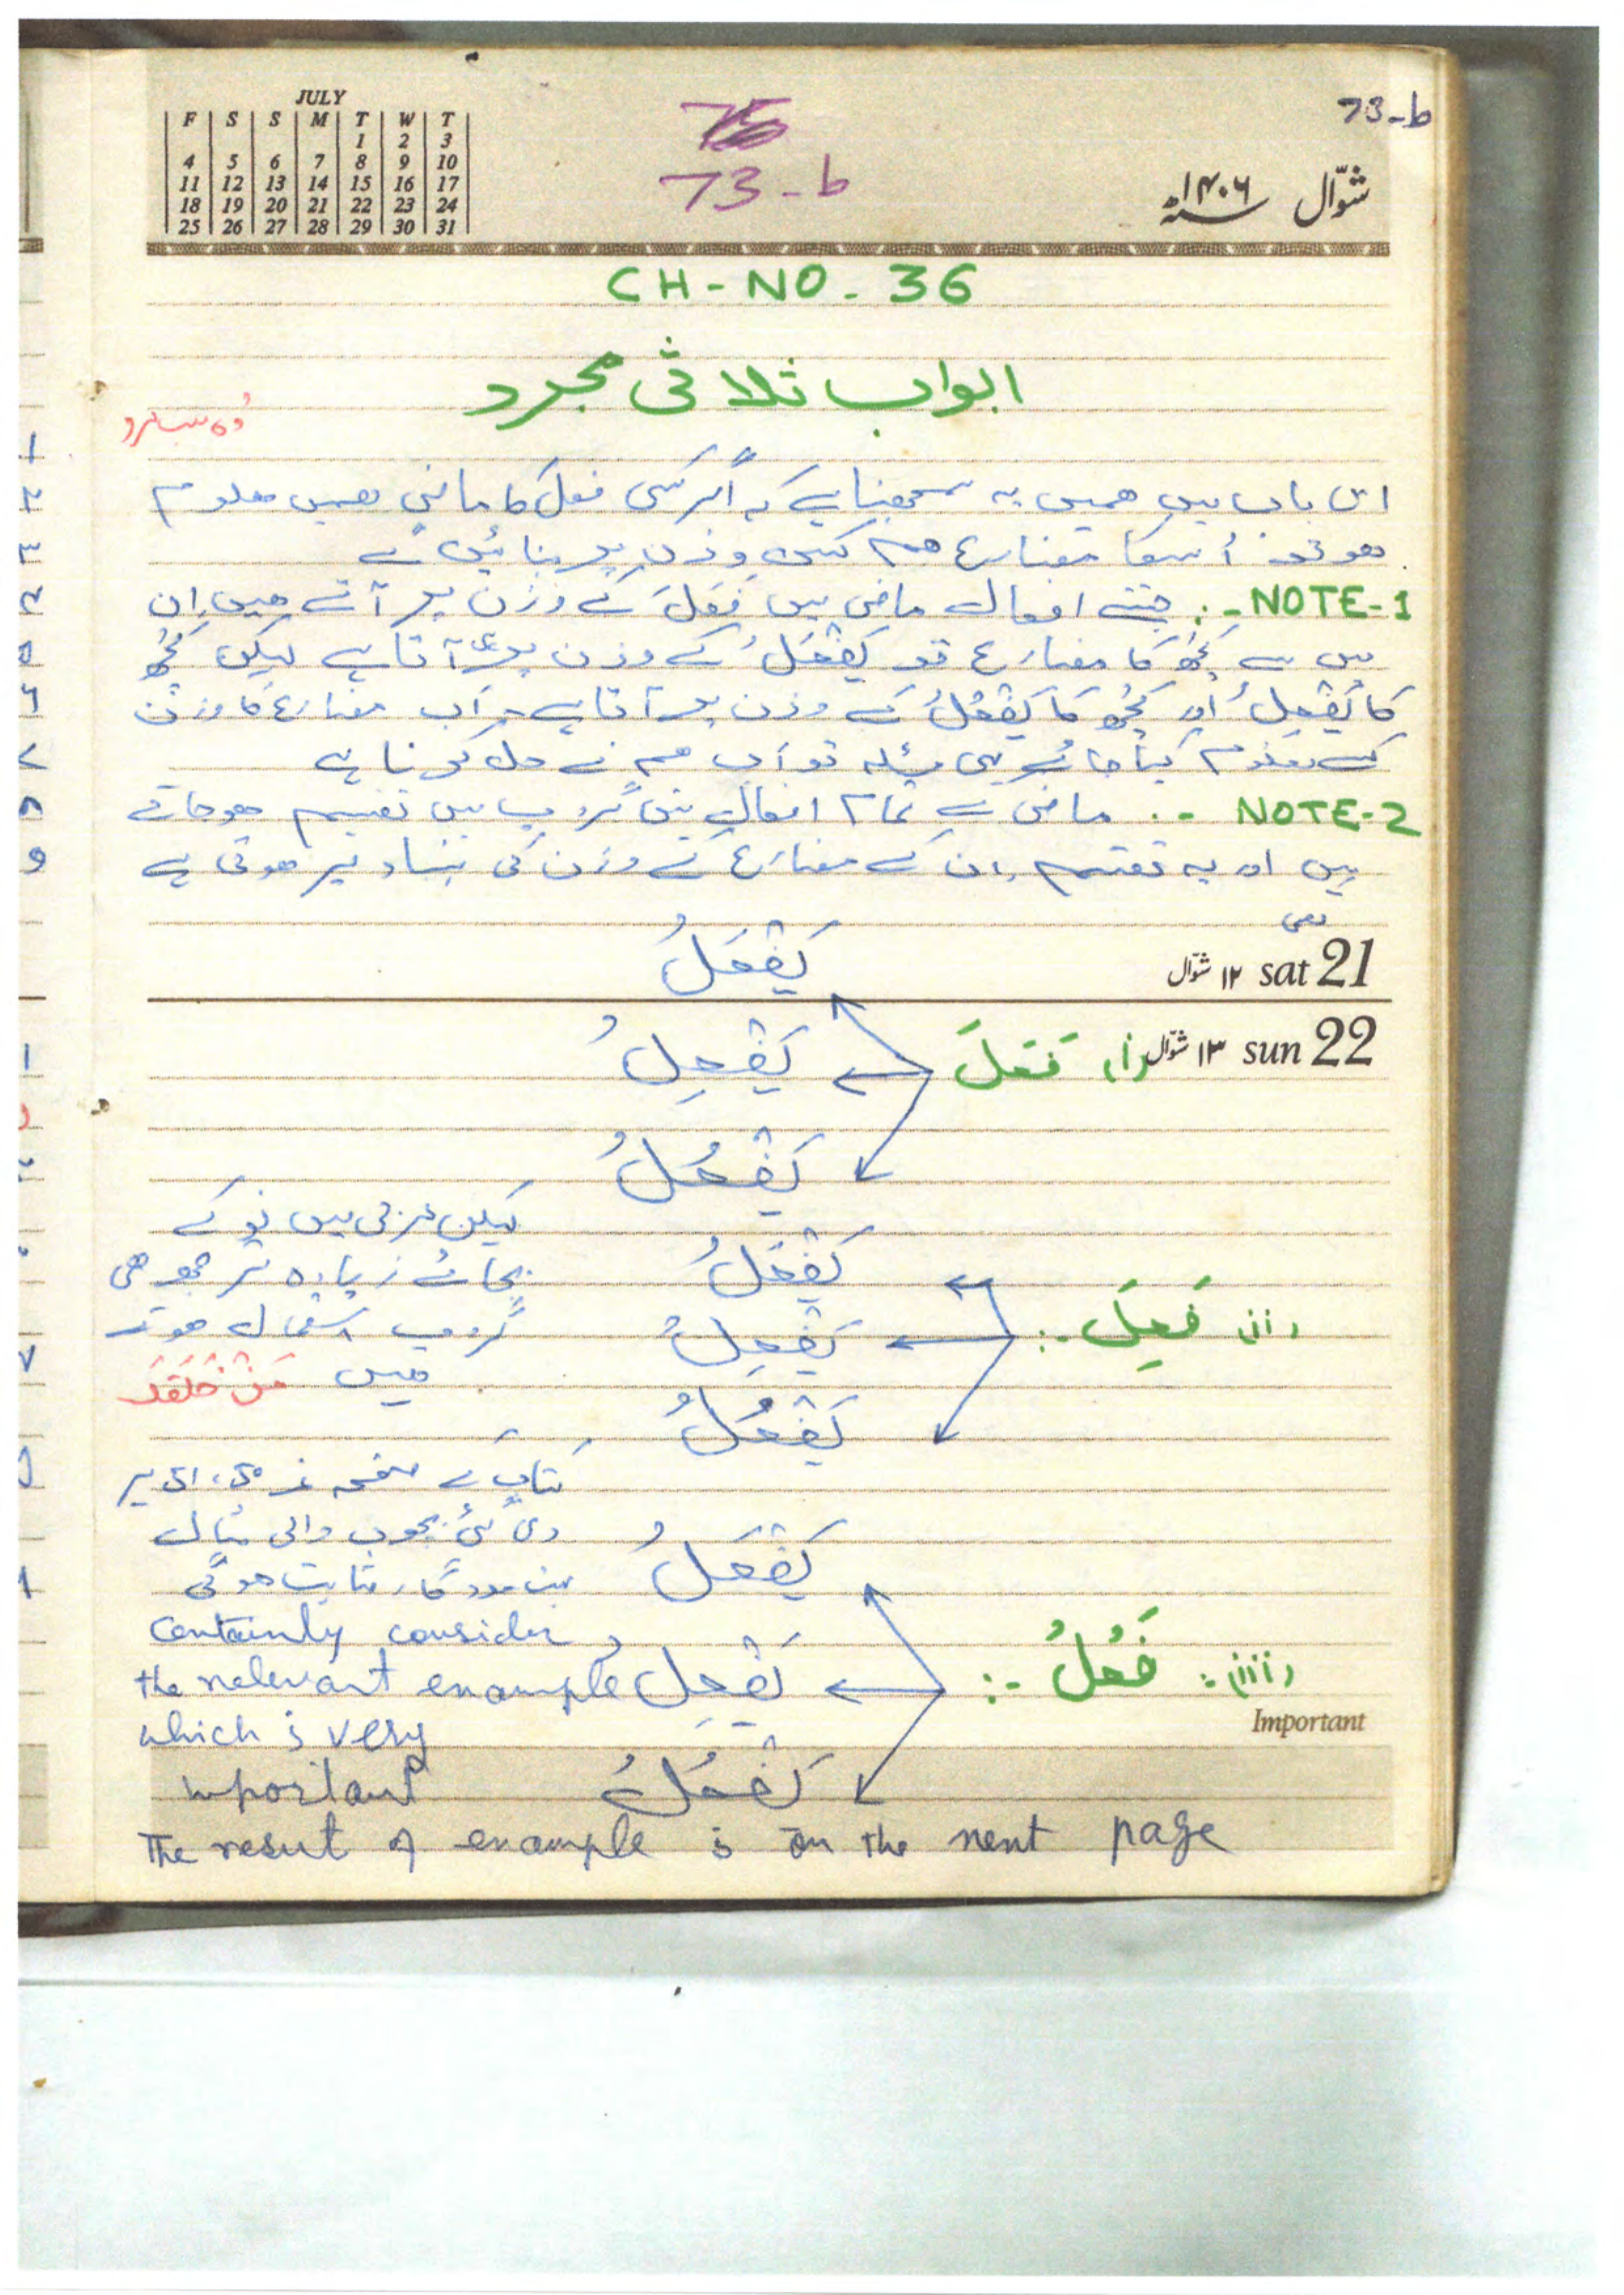 73-b
JULY
F S S M T W T
1 2 3
4 5 6 7 8 9 10
11 12 13 14 15 16 17
18 19 20 21 22 23 24
25 26 27 28 29 30 31
73-b
شوّال ۱۴۰۶
CH-NO-36
ابواب ثلاثی مجرد
اس باب میں ہمیں یہ سمجھنا ہے کہ اگر کسی فعل کا ماضی ہمیں معلوم
ہو تو اُسکا مضارع ہم کس وزن پر بنائیں گے
NOTE-1 :- جتنے افعال ماضی میں فَعَلَ کے وزن پر آتے ہیں ان
میں سے کچھ کا مضارع تو یَفْعَلُ کے وزن پر ہی آتا ہے لیکن کچھ
کا یَفْعِلُ اور کچھ کا یَفْعُلُ کے وزن پر آتا ہے اب مضارع کا وزن
کیسے معلوم کیا جائے یہی مسئلہ تو اب ہم نے حل کرنا ہے
NOTE-2 :- ماضی کے تمام افعال تین گروپ میں تقسیم ہوجاتے
ہیں اور یہ تقسیم ان کے مضارع کے وزن کی بنیاد پر ہوتی ہے
یعنی
یَفْعَلُ
۱۲ شوّال sat 21
۱۳ شوّال sun 22
(i) فَعَلَ
یَفْعِلُ
یَفْعُلُ
لیکن عربی میں نو کے
بجائے زیادہ تر چھ ہی
گروپ استعمال ہوتے
ہیں
(ii) فَعِلَ :-
یَفْعَلُ
یَفْعِلُ
یَفْعُلُ
کتاب کے صفحہ نمبر پر
دی گئی بچوں والی مثال
بہت مددگار ثابت ہوگی
Certainly consider
the relevant example
which is very
important
(iii) فَعُلَ :-
یَفْعَلُ
یَفْعِلُ
یَفْعُلُ
Important
The result of example is on the next page